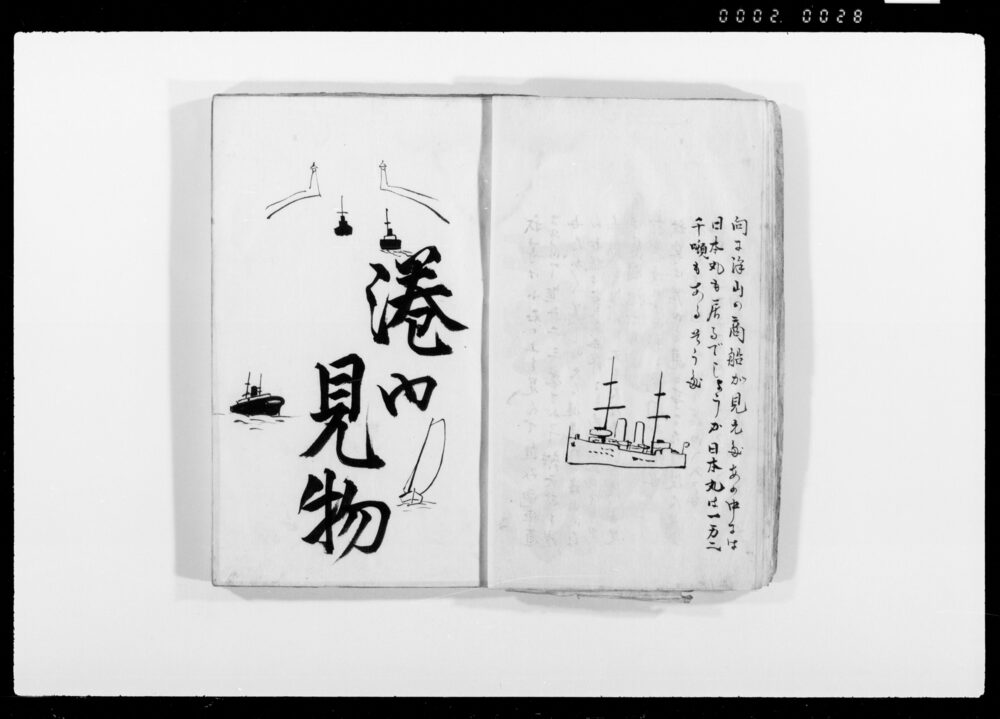 0002 0028
向に沢山の商船が見えるあの中には
日本丸も居るでしょうか日本丸は一万二
千噸もあるそうな
港内
見物